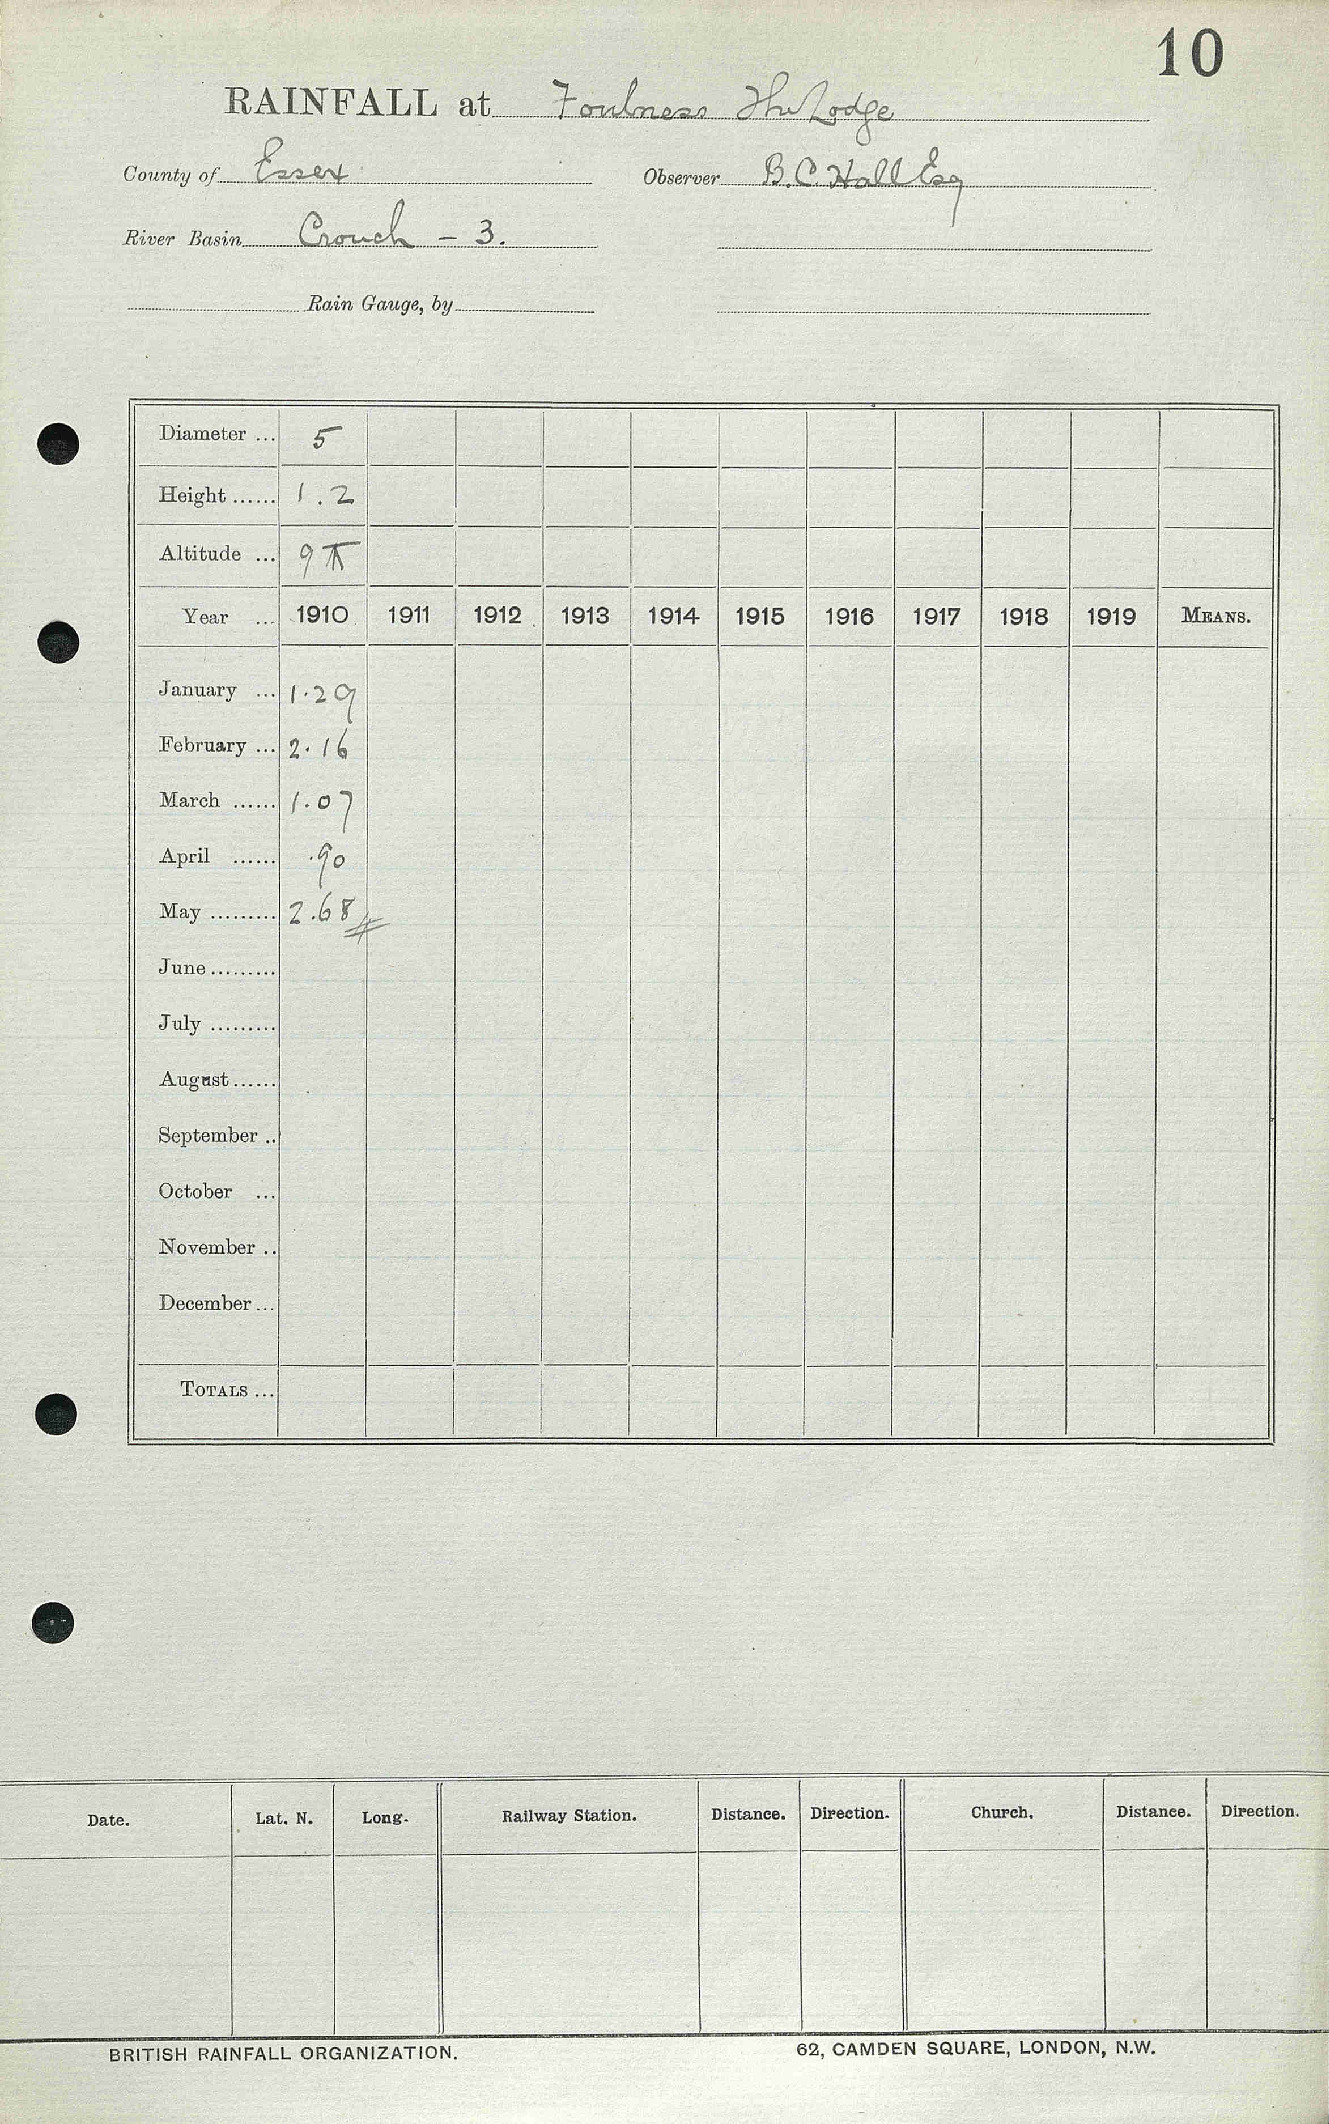 10
RAINFALL at Foulness The Lodge
County of Essex Observer B.C. Hall Esq
River Basin Crouch - 3.
Rain Gauge, by
Diameter ... 5
Height ...... 1.2
Altitude ... 9
Year ... 1910 1911 1912 1913 1914 1915 1916 1917 1918 1919 MEANS.
January ... 1.29
February ... 2.16
March ...... 1.07
April ...... .90
May ......... 2.68
June .........
July .........
August ......
September ..
October ...
November ..
December ...
TOTALS ...
Date. Lat. N. Long. Railway Station. Distance. Direction. Church. Distance. Direction.
BRITISH RAINFALL ORGANIZATION. 62, CAMDEN SQUARE, LONDON, N.W.